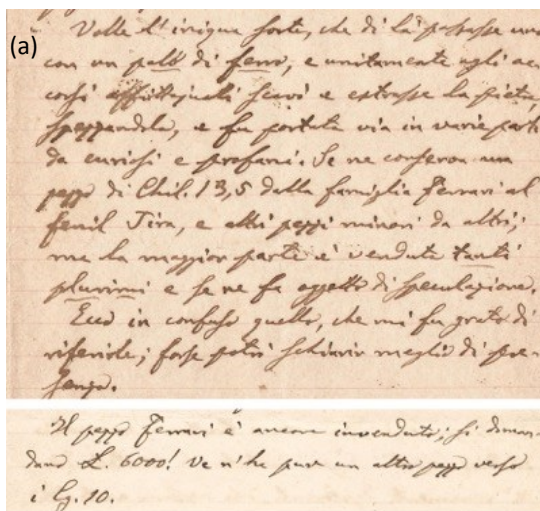 (a)
Volle l'iniqua sorte, che di là passasse uno
con un palo di ferro, e unitamente agli ac-
corsi affittajuoli scavò e estrasse la pietra,
spezzandola, e fu portata via in varie parti
da curiosi e profani. Se ne conserva un
pezzo di Chil. 13,5 dalla famiglia Ferrari al
fenil Tira, e altri pezzi minori da altri;
ma la maggior parte è venduta tanti
plurimi e se ne fa oggetto di speculazione.
Ecco in confuso quello, che mi fu grato di
riferirle; forse potrò schiarir meglio di pre-
senza.
Il pezzo Ferrari è ancora invenduto; si diman-
dano L. 6000! Ve n'ha pure un altro pezzo verso
i Cg. 10.